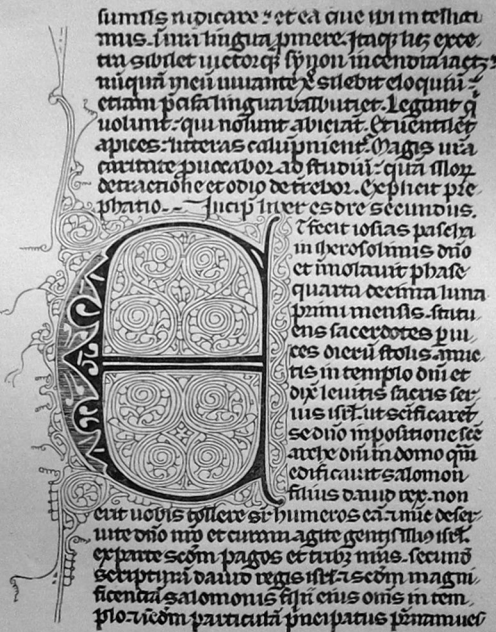 sumus iudicare: et ea que ibi intellexi
mus. in nra lingua pmere. Itaqz licz exce
tra sibilet victorqz synon incendia iactz:
nuquã meũ iuuante xp̄o silebit eloquiũ:
etiam pcisa lingua balbutiet. Legant q̇
volunt: qui nolunt abiciãt. Et uentilẽt
apices: litteras calupnient. Magis vrã
caritate puocabor ad studiũ: quã illorz
detractione et odio deterrebor. Explicit pre
phatio. Incipit liber esdre secundus.
E
T fecit iosias pascha
in iherosolimis dño
et imolauit phase
quarta decima luna
primi mensis. statu
ens sacerdotes p ui
ces dierũ stolis amic
tis in templo dñi et
dix leuitis sacris ser
uis isrl ut scificarẽt
se dño in positione scẽ
arche dñi in domo quã
edificauit salomon
filius dauid rex. non
erit uobis tollere sr humeros eã. nũc deser
uite dño nro et curam agite gentis illius isrl.
ex parte scdm pagos et tribz mũs. secund
scripturã dauid regis isrl. et scdm magni
ficentiã salomonis filii eius oms in tem
plo. et scdm particulã pncipatus